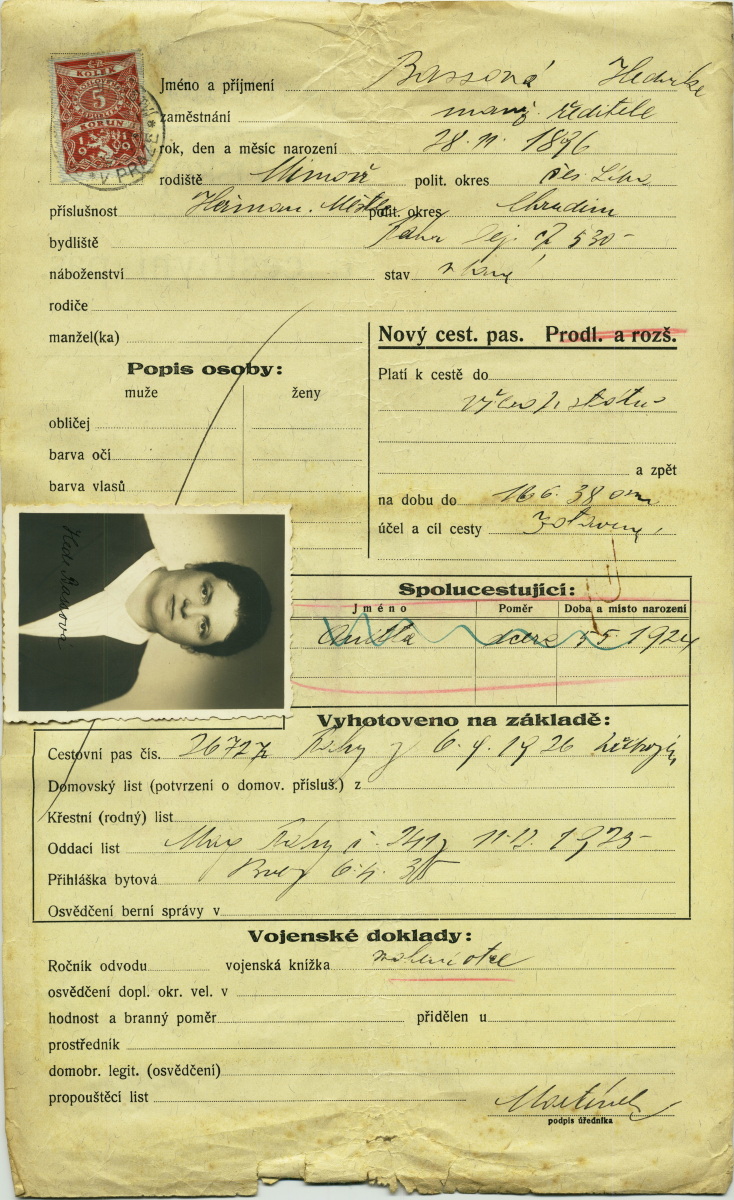 KOLEK
5
KORUN
Jméno a příjmení Bassová Hedvika
zaměstnání manž. ředitele
rok, den a měsíc narození 28. 11. 1876
rodiště Mimoň polit. okres Čes Lípa
příslušnost Heřman. Městec polit. okres Chrudim
bydliště Praha čp 530
náboženství stav vdaná
rodiče
manžel(ka)
Nový cest. pas. Prodl. a rozš.
Popis osoby:
muže ženy
obličej
barva očí
barva vlasů
Platí k cestě do
všech států
a zpět
na dobu do 16 6. 38
účel a cíl cesty zotavení
Hede Bassova
Spolucestující:
Jméno Poměr Doba a místo narození
Anita dcera 5 5 1924
Vyhotoveno na základě:
Cestovní pas čís. 26727 Prahy z 6. 4. 1926
Domovský list (potvrzení o domov. přísluš.) z
Křestní (rodný) list
Oddací list Prahy č. 11. 12. 1925
Přihláška bytová 6. 4. 35
Osvědčení berní správy v
Vojenské doklady:
Ročník odvodu vojenská knížka svolení otce
osvědčení dopl. okr. vel. v
hodnost a branný poměr přidělen u
prostředník
domobr. legit. (osvědčení)
propouštěcí list
Martínek
podpis úředníka